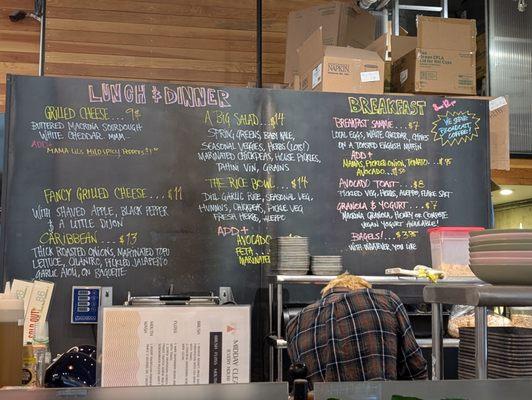 LUNCH & DINNER
GRILLED CHEESE... 9
BUTTERED MACRINA SOURDOUGH
WHITE CHEDDAR. MMM.
ADD+
MAMA LILS MILD SPICY PEPPERS
FANCY GRILLED CHEESE... $11
WITH SHAVED APPLE, BLACK PEPPER
& A LITTLE DIJON
CARIBBEAN... $13
THICK ROASTED ONIONS, MARINATED TOFU
LETTUCE, CILANTRO, PICKLED JALAPEÑO
GARLIC AIOLI, ON BAGUETTE
A BIG SALAD... $14
SPRING GREENS, BABY KALE,
SEASONAL VEGGIES, HERBS (LOTS!)
MARINATED CHICKPEAS, HOUSE PICKLES,
TAHINI VIN, GRAINS
THE RICE BOWL... $14
DILL RICE, SEASONAL VEG,
HUMMUS, PICKLE VEG
FRESH HERBS,
ADD+
AVOCADO
FETA
MARINATED
BREAKFAST
BREAKFAST SAMMIE... $7
LOCAL EGGS, WHITE CHEDDAR, CHIVES
ON A TOASTED ENGLISH MUFFIN
ADD+
MAMAS, PICKLED ONION, TOMATO...
AVOCADO...
AVOCADO TOAST... $8
PICKLED VEG, HERBS, FLAKE SALT
GRANOLA & YOGURT... $7
MACRINA GRANOLA, HONEY OR COMPOTE
VEGAN YOGURT AVAILABLE!
BAGELS!...
WITH WHATEVER YOU LIKE
WE SERVE
BROADCAST
COFFEE!
Napkins
SOLD OUT!